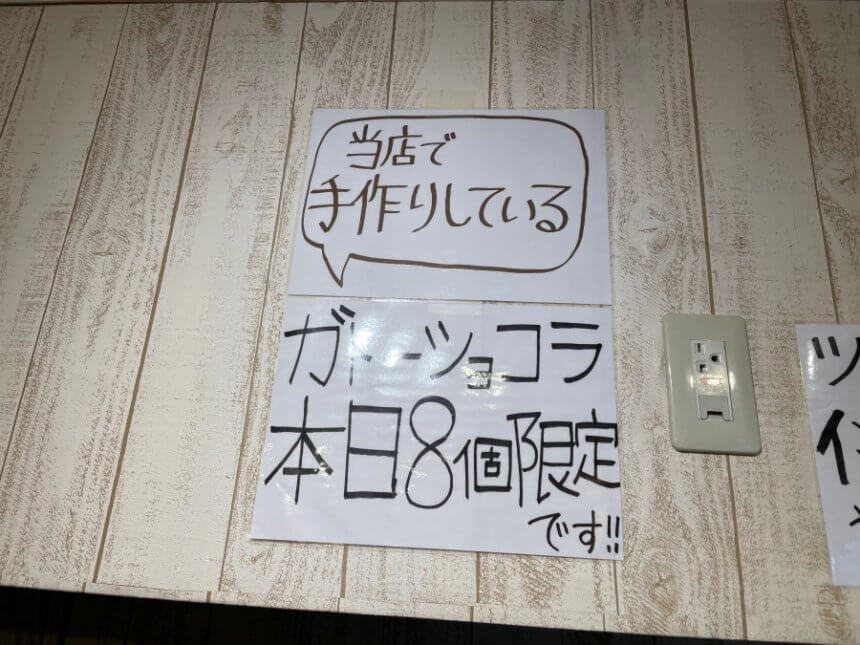 当店で
手作りしている
ガトーショコラ
本日8個限定
です!!
ツ
イ